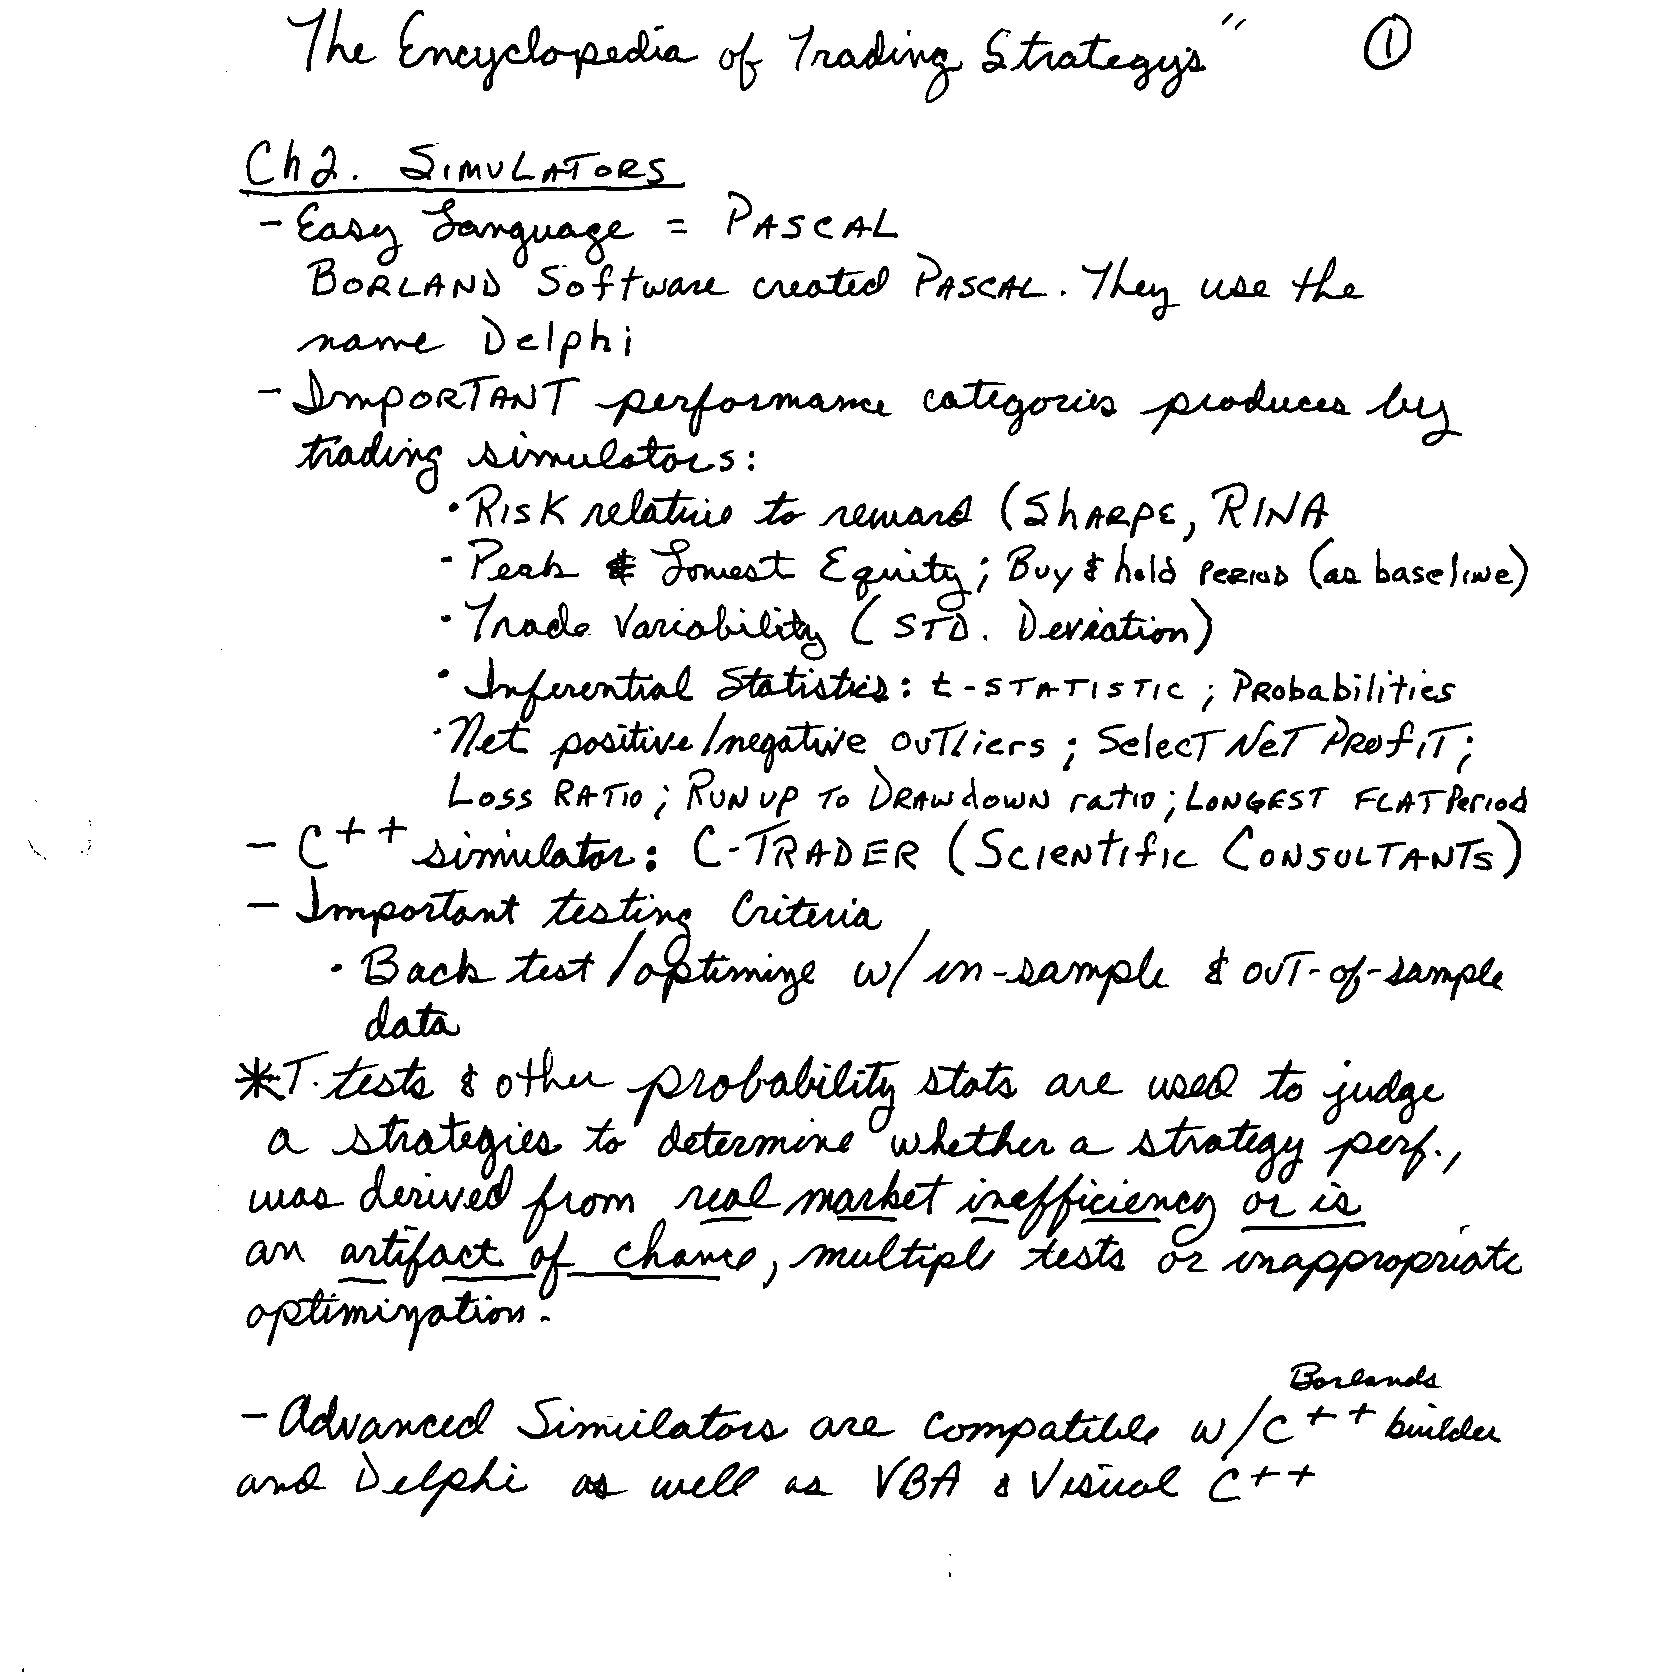 The Encyclopedia of Trading Strategys" ①
Ch 2. SIMULATORS
- Easy Language = PASCAL
BORLAND Software created PASCAL. They use the
name Delphi
- IMPORTANT performance categories produces by
trading simulators:
• RISK relative to reward (SHARPE, RINA
- Peak & Lowest Equity; Buy & hold PERIOD (as baseline)
• Trade Variability (STD. Deviation)
• Inferential Statistics: t-STATISTIC; PRobabilities
• Net positive/negative ouTliers; SelecT NeT PRofiT;
Loss RATIO; RUN UP TO DRAWdOWN ratio; LONGEST FLAT Period
- C++ simulator: C-TRADER (SCIENTIfIC CONSULTANTS)
- Important testing Criteria
• Back test/optimize w/ in-sample & ouT-of-sample
data
* T. tests & other probability stats are used to judge
a strategies to determine whether a strategy perf.,
was derived from real market inefficiency or is
an artifact of chance, multiple tests or inappropriate
optimization.
Borlands
- Advanced Simulators are compatible w/C++ builder
and Delphi as well as VBA & Visual C++